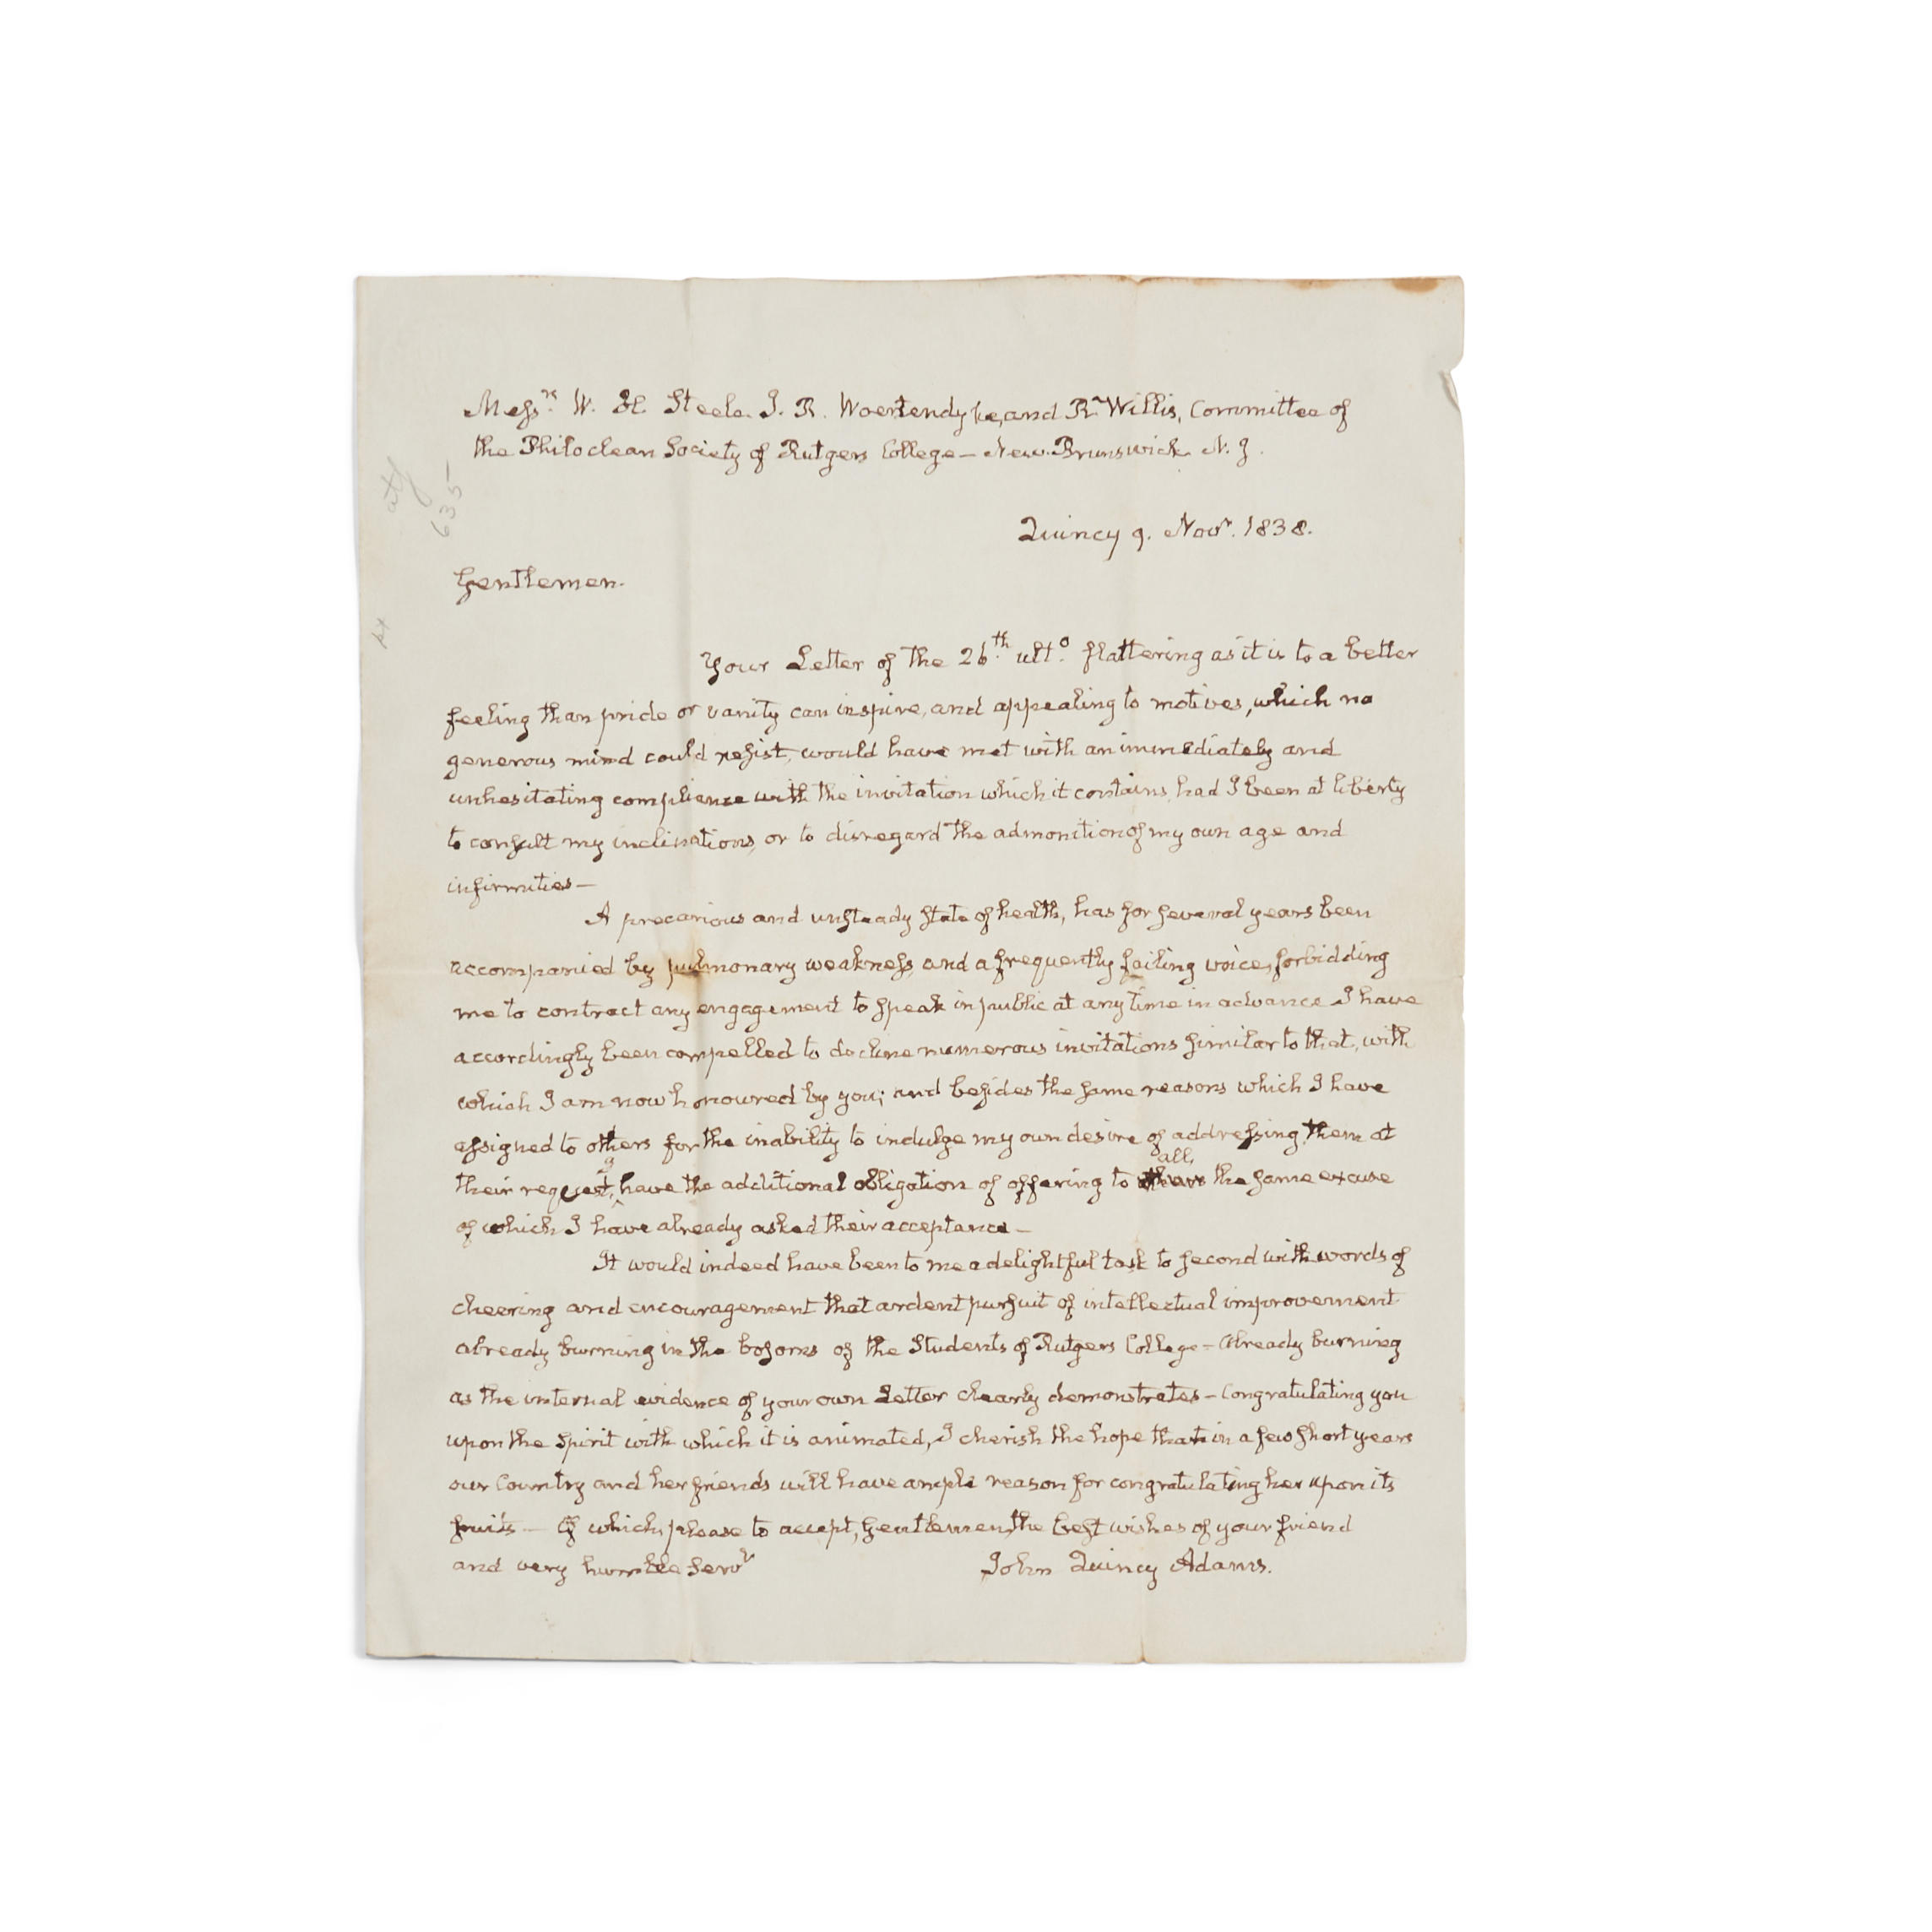 Messrs. W. H. Steele. J. R. Woertendyke, and R. Willis, Committee of
the Philoclean Society of Rutgers College — New-Brunswick N. J.
aty
635
Quincy 9. Novr. 1838.
Gentlemen.
Your Letter of the 26th. ulto. flattering as it is to a better
feeling than pride or vanity can inspire, and appealing to motives, which no
generous mind could resist, would have met with an immediately and
unhesitating compliance with the invitation which it contains, had I been at liberty
to consult my inclinations, or to disregard the admonition of my own age and
infirmities —
A precarious and unsteady state of health, has for several years been
accompanied by pulmonary weakness, and a frequently failing voice, forbidding
me to contract any engagement to speak in public at any time in advance I have
accordingly been compelled to decline numerous invitations similar to that, with
which I am now honoured by you; and besides the same reasons which I have
assigned to others for the inability to indulge my own desire of addressing them at
their request, I have the additional obligation of offering to all, the same excuse
of which I have already asked their acceptance —
It would indeed have been to me a delightful task to second with words of
cheering and encouragement that ardent pursuit of intellectual improvement
already burning in the bosoms of the Students of Rutgers College — Already burning
as the internal evidence of your own Letter clearly demonstrates — Congratulating you
upon the Spirit with which it is animated, I cherish the hope that in a few short years
our Country and her friends will have ample reason for congratulating her upon its
fruits — Of which, please to accept, Gentlemen, the best wishes of your friend
and very humble servt
John Quincy Adams.